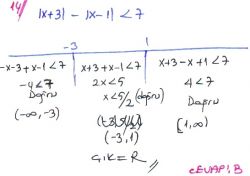 14) |x+3| - |x-1| < 7
-3 1
-x-3+x-1<7 x+3+x-1<7 x+3-x+1<7
-4<7 2x<5 4<7
Doğru x<5/2 (doğru) Doğru
(-∞, -3) (-3, 1) [1, ∞)
Ç.K = R //
CEVAP: B